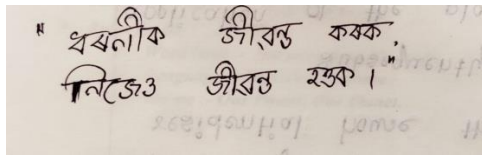 " ধৰণীক জীৱন্ত কৰক,
নিজেও জীৱন্ত হওক।"